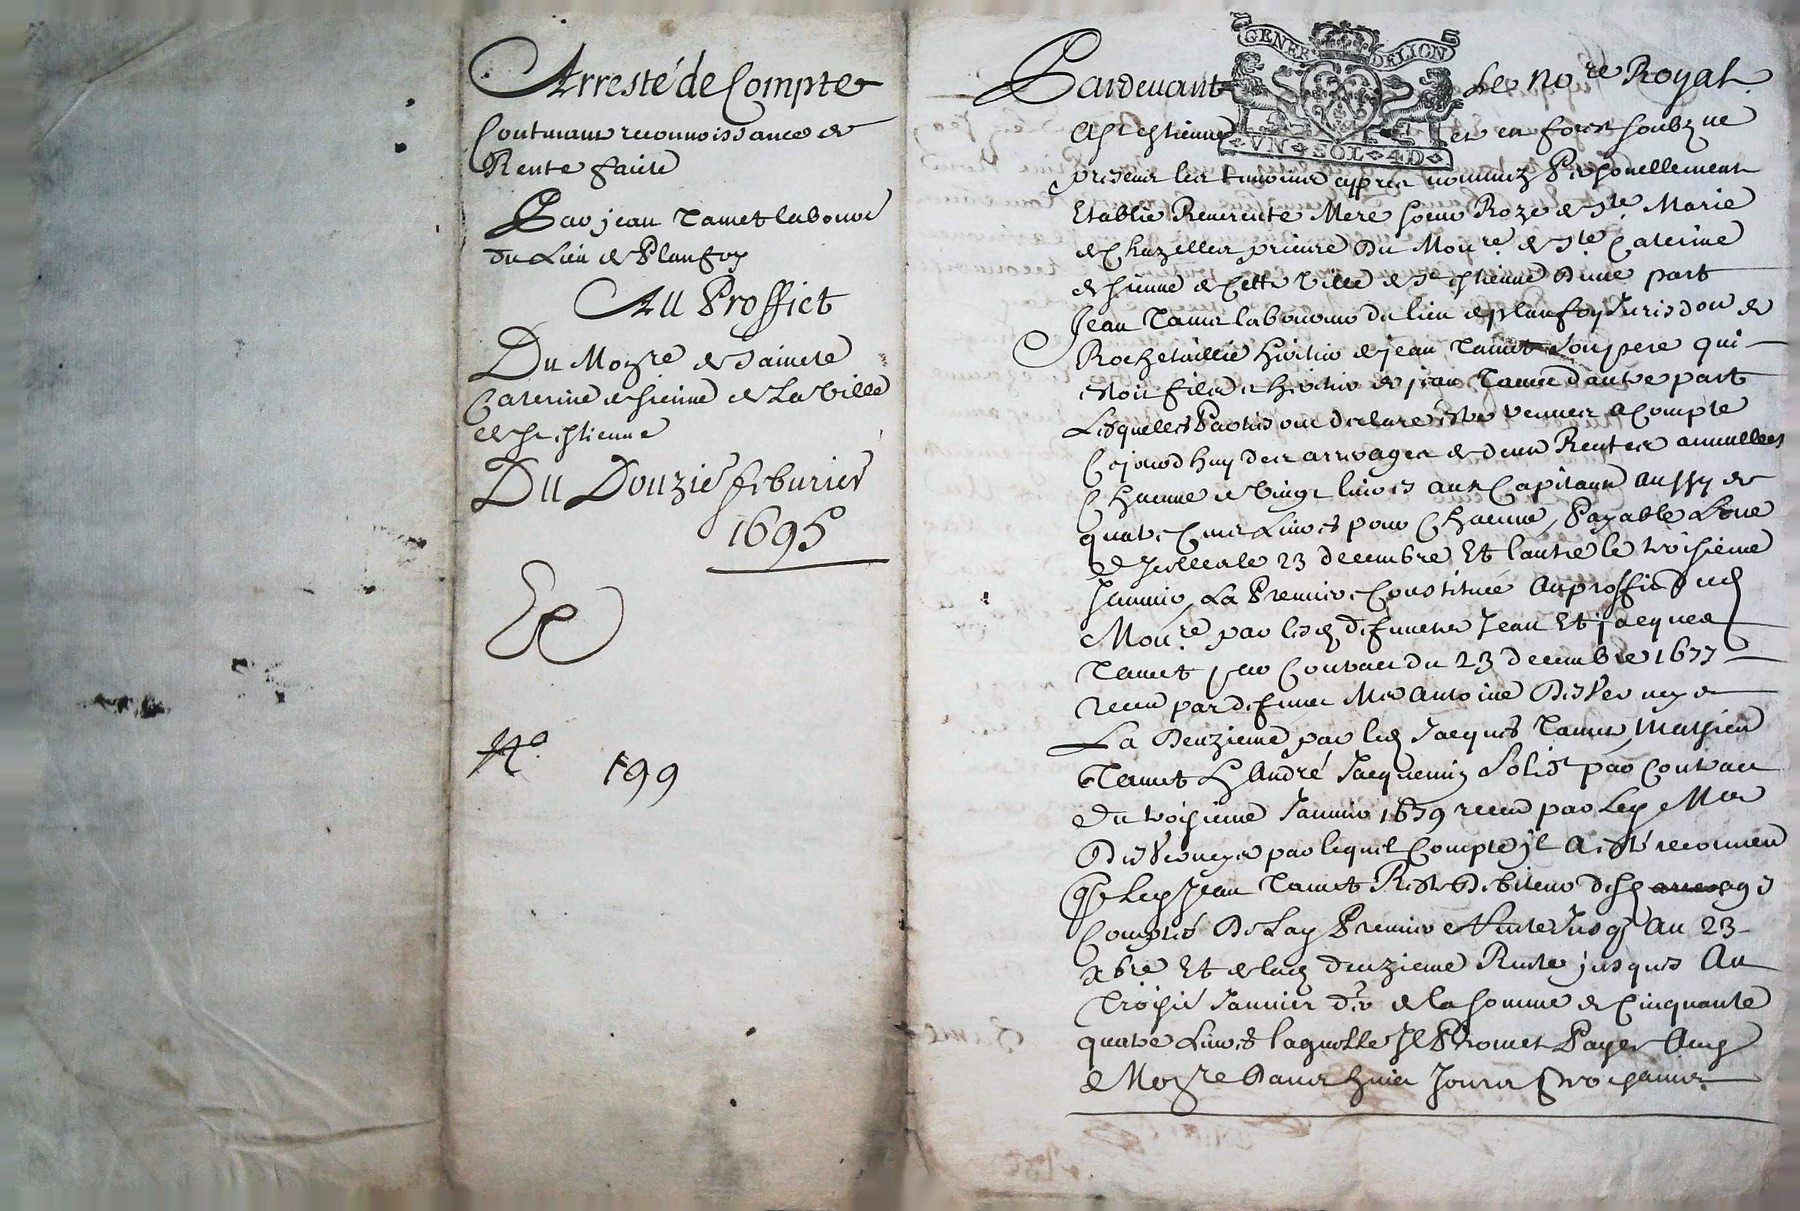 Arresté de Compte
Contenant reconnoissance de
Rente faitte
Par jean Tamet laboure
du Lieu de Planfoy
Au Proffict
Du Mogre de saincte
Caterine de sienne de La ville
de St Estienne
Du Douzie feburier
1695
No 199
GENER DELION
VN SOL 4D
Pardevant Le Nore Royal
A St estienne et en forest soubzne
presens les temoins appres nommez Personellement
Establie Reverente Mere soeur Roze de Ste Marie
de Chazelles prieure Du Monre de Ste Caterine
de sienne de Cette ville de St estienne Dune part
Jean Tamet laboureur du lieu de planfoy Jurisdon de
Rochetaillie heritier de jean Tamet son pere qui
estoit fils et heritier de jean Tamet dautre part
Lesquelles Parties ont declare estre venues a Compte
Cejourdhuy des arrerages de deux Rentes annuelles
Chacune de vingt livres aux Capitaux aussy de
quatre Cens Livres pour Chacune, Payable Lune
le 23 decembre Et lautre le troisieme
Janvier, La Premiere Constituée au proffit dud
Monre par lesd deffuncts Jean Et jacques
Tamet par Contract du 23 decembre 1677
receu par deffunct Mre Antoine DesVerneys
La Deuzieme par led Jacques Tamet, Mathieu
Tamet & André Jacquemin Solid par Contract
du troisieme Janvier 1679 receu par Led Mre
DesVerneys par lequel Compte jl A esté reconneu
que Led Jean Tamet Reste Debiteur desd arrerages
Comptes De Lad Premiere Rente Jusqs Au 23
xbre Et de lad deuzieme Rente jusques Au
Troisie Janvier der de la somme de Cinquante
quatre Livres laquelle Jl Promet Payer Aud
Mogre Dans huict Jours Prochains